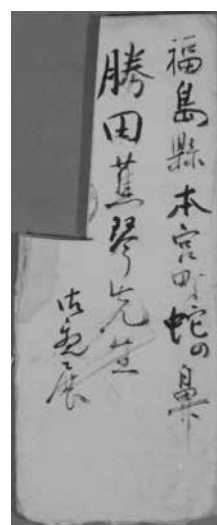 福島縣本宮町蛇の鼻
勝田蕉琴先生
御親展